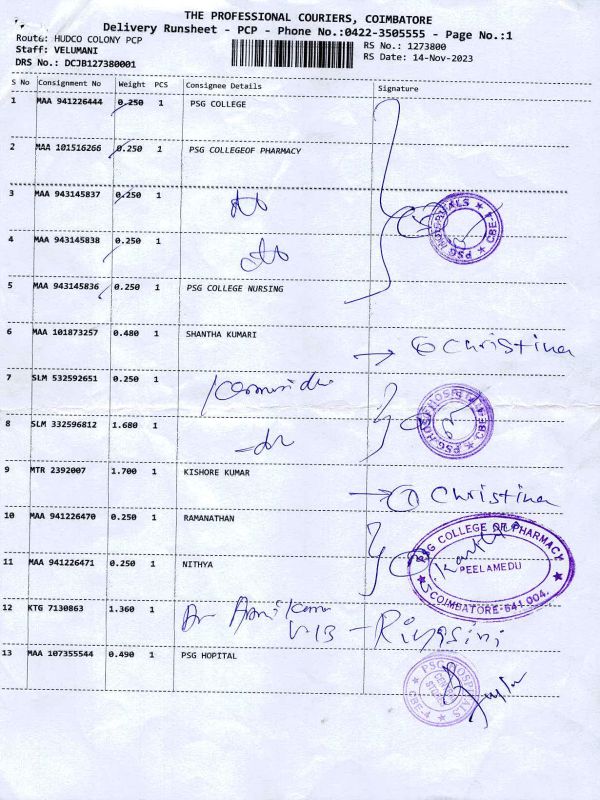 THE PROFESSIONAL COURIERS, COIMBATORE
Delivery Runsheet - PCP - Phone No.:0422-3505555 - Page No.:1
Route: HUDCO COLONY PCP
RS No.: 1273800
Staff: VELUMANI
RS Date: 14-Nov-2023
DRS No.: DCJB127380001
S No Consignment No Weight PCS Consignee Details Signature
1 MAA 941226444 0.250 1 PSG COLLEGE
2 MAA 101516266 0.250 1 PSG COLLEGEOF PHARMACY
3 MAA 943145837 0.250 1
PSG HOSPITALS CBE-4
4 MAA 943145838 0.250 1
5 MAA 943145836 0.250 1 PSG COLLEGE NURSING
6 MAA 101873257 0.480 1 SHANTHA KUMARI Christina
7 SLM 532592651 0.250 1
PSG HOSPITALS CBE-4
8 SLM 332596812 1.680 1
9 MTR 2392007 1.700 1 KISHORE KUMAR Christina
10 MAA 941226470 0.250 1 RAMANATHAN
PSG COLLEGE OF PHARMACY
PEELAMEDU
COIMBATORE-641 004.
11 MAA 941226471 0.250 1 NITHYA
12 KTG 7130863 1.360 1 Dr
13 MAA 107355544 0.490 1 PSG HOPITAL
PSG HOSPITALS CBE-4